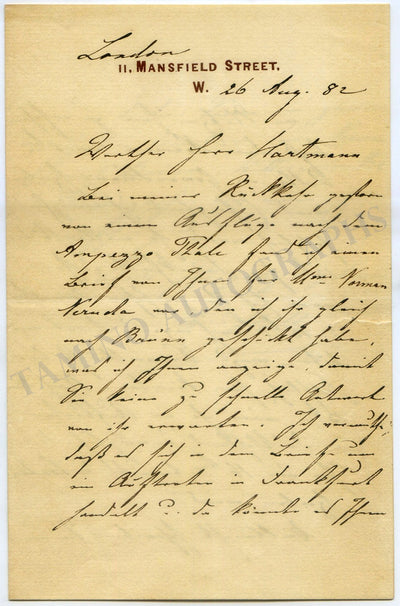 London
11, Mansfield Street,
W. 26 Aug. 82
Werther Herr Hartmann
Bei meiner Rückkehr gestern
von einem Ausfluge nach dem
Ampezzo Thale fand ich einen
Brief von Ihnen für Mme Norman
Neruda vor, den ich ihr gleich
nach Brünn geschickt habe,
was ich Ihnen anzeige, damit
Sie keine zu schnelle Antwort
von ihr erwarten. Ich vermuthe,
daß es sich in dem Briefe um
ein Auftreten in Frankfurt
handelt u. da könnte es Ihnen
TAMINO AUTOGRAPHS